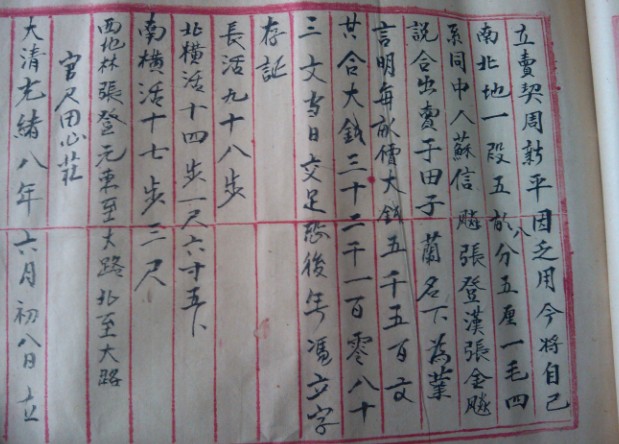 立賣契周新平因乏用今將自己
南北地一段五畝八分五厘一毛四
系同中人蘇信 賸張登漢張金賸
説合出賣于田子蘭名下為業
言明每畝價大錢五千五百文
共合大錢三十二千一百零八十
三文当日交足恐後無馮立字
存証
長活九十八步
北橫活十四步一尺六寸五卜
南橫活十七步三尺
西地林張登元東至大路北至大路
官尺田心莊
大清光緒八年六月初八日立